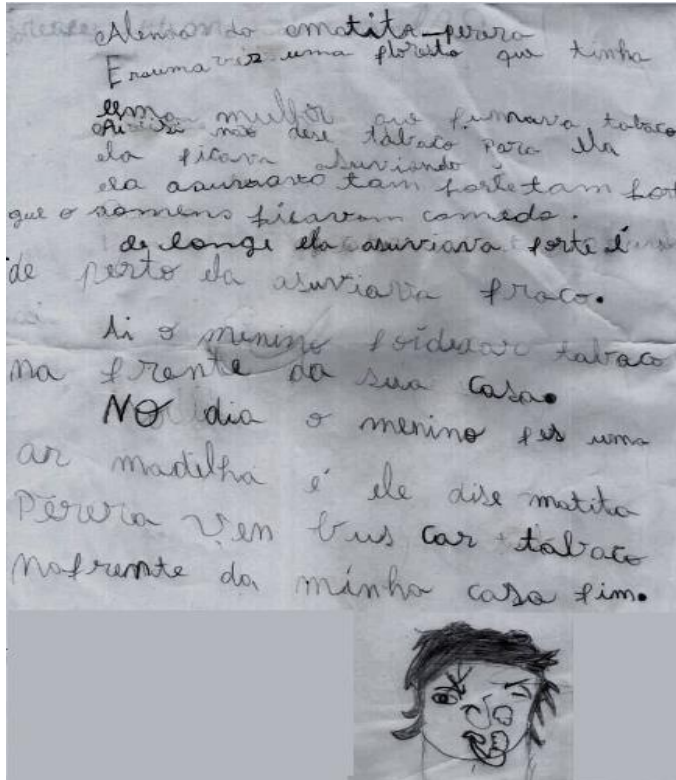 Alensondo amatita-perera
Eraumavez uma floresta que tinha
uma mulher que fumava tabaco
não dese tabaco para ela
ela ficava asuviando
ela asuviava tam forte tam for
que o somens ficavam comedo.
de longe ela asuviava forte é
de perto ela asuviava fraco.
Ai o menino foideixar tabaco
na frente da sua casa.
NO dia o menino fes uma
ar madilha é ele dise matita
Perera ven bus car tabaco
nafrente da minha casa fim.